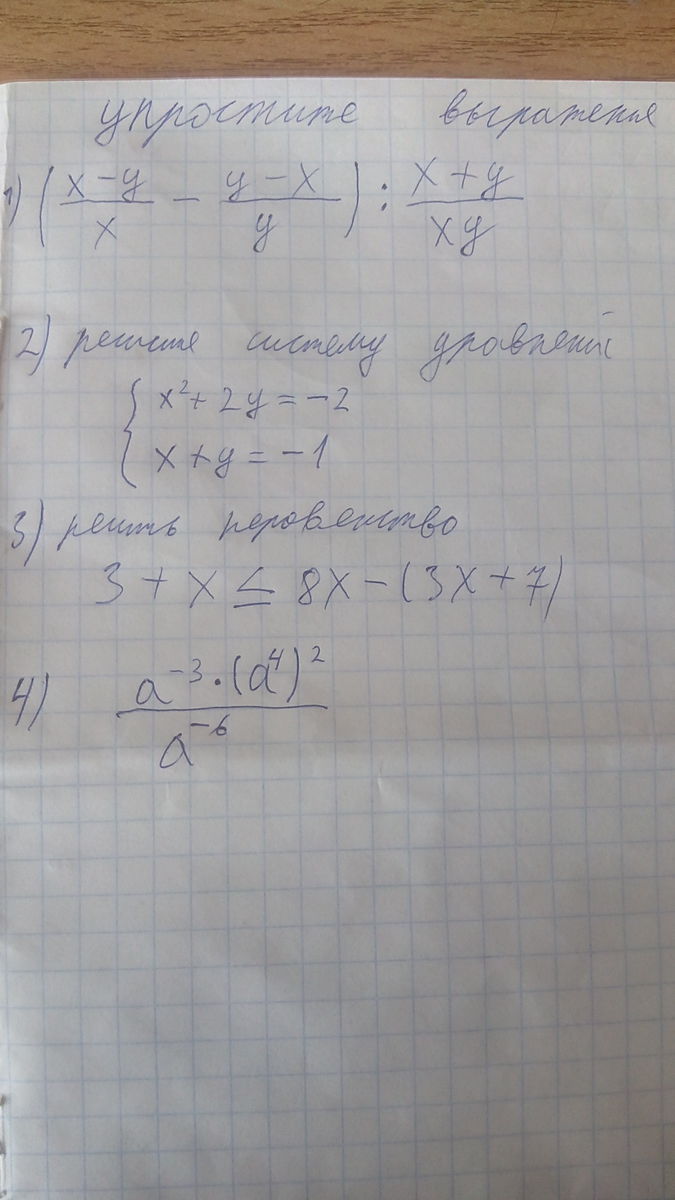 упростите выражения
1) (x-y/x - y-x/y) : x+y/xy
2) решите систему уравнений
{ x²+2y=-2
x+y=-1
3) решить неровенство
3+x≤8x-(3x+7)
4) a⁻³·(a⁴)²/a⁻⁶